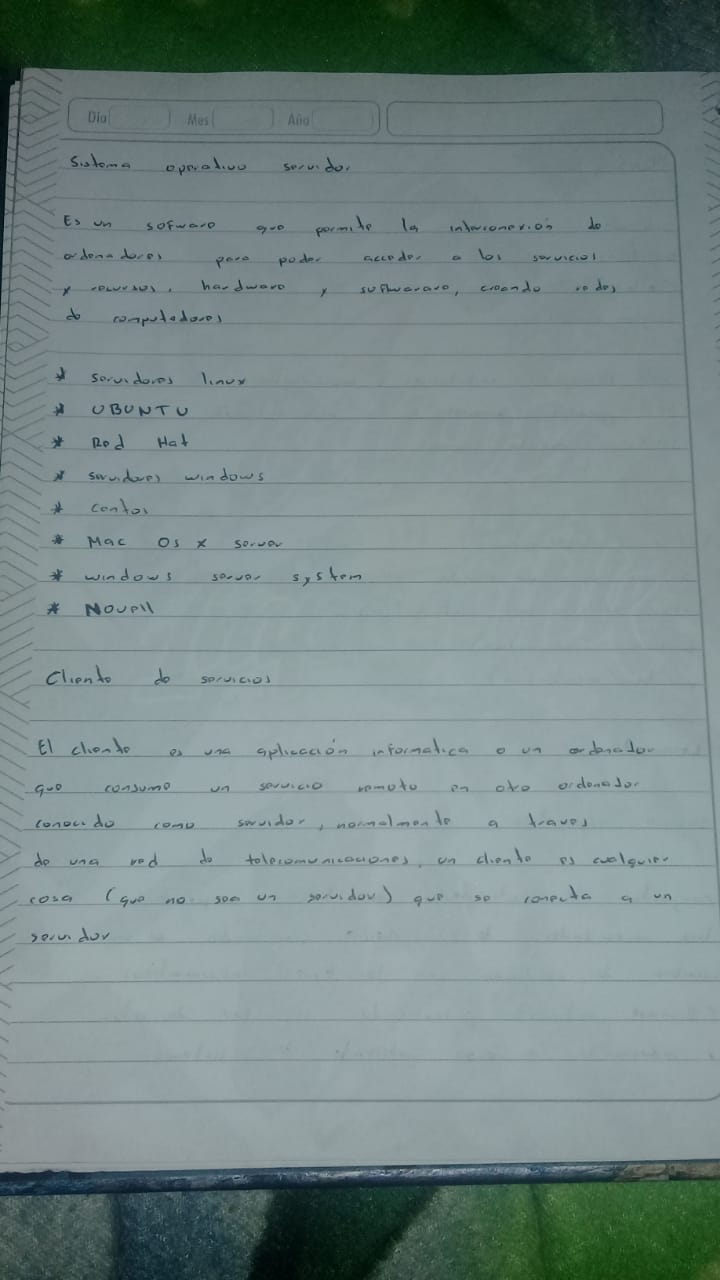 Dia Mes Año
Sistema operativo servidor
Es un sofware que permite la interconexión de
ordenadores para poder acceder a los servicios
y recursos, hardware y sofwarare, creando redes
de computadores
* servidores linux
* UBUNTU
* Red Hat
* servidores windows
* centos
* Mac OS X server
* windows server system
* Novell
Cliente de servicios
El cliente es una aplicación informatica o un ordenador
que consume un servicio remoto en otro ordenador
conocido como servidor, normalmente a traves
de una red de telecomunicaciones, un cliente es cualquier
cosa (que no sea un servidor) que se conecta a un
servidor